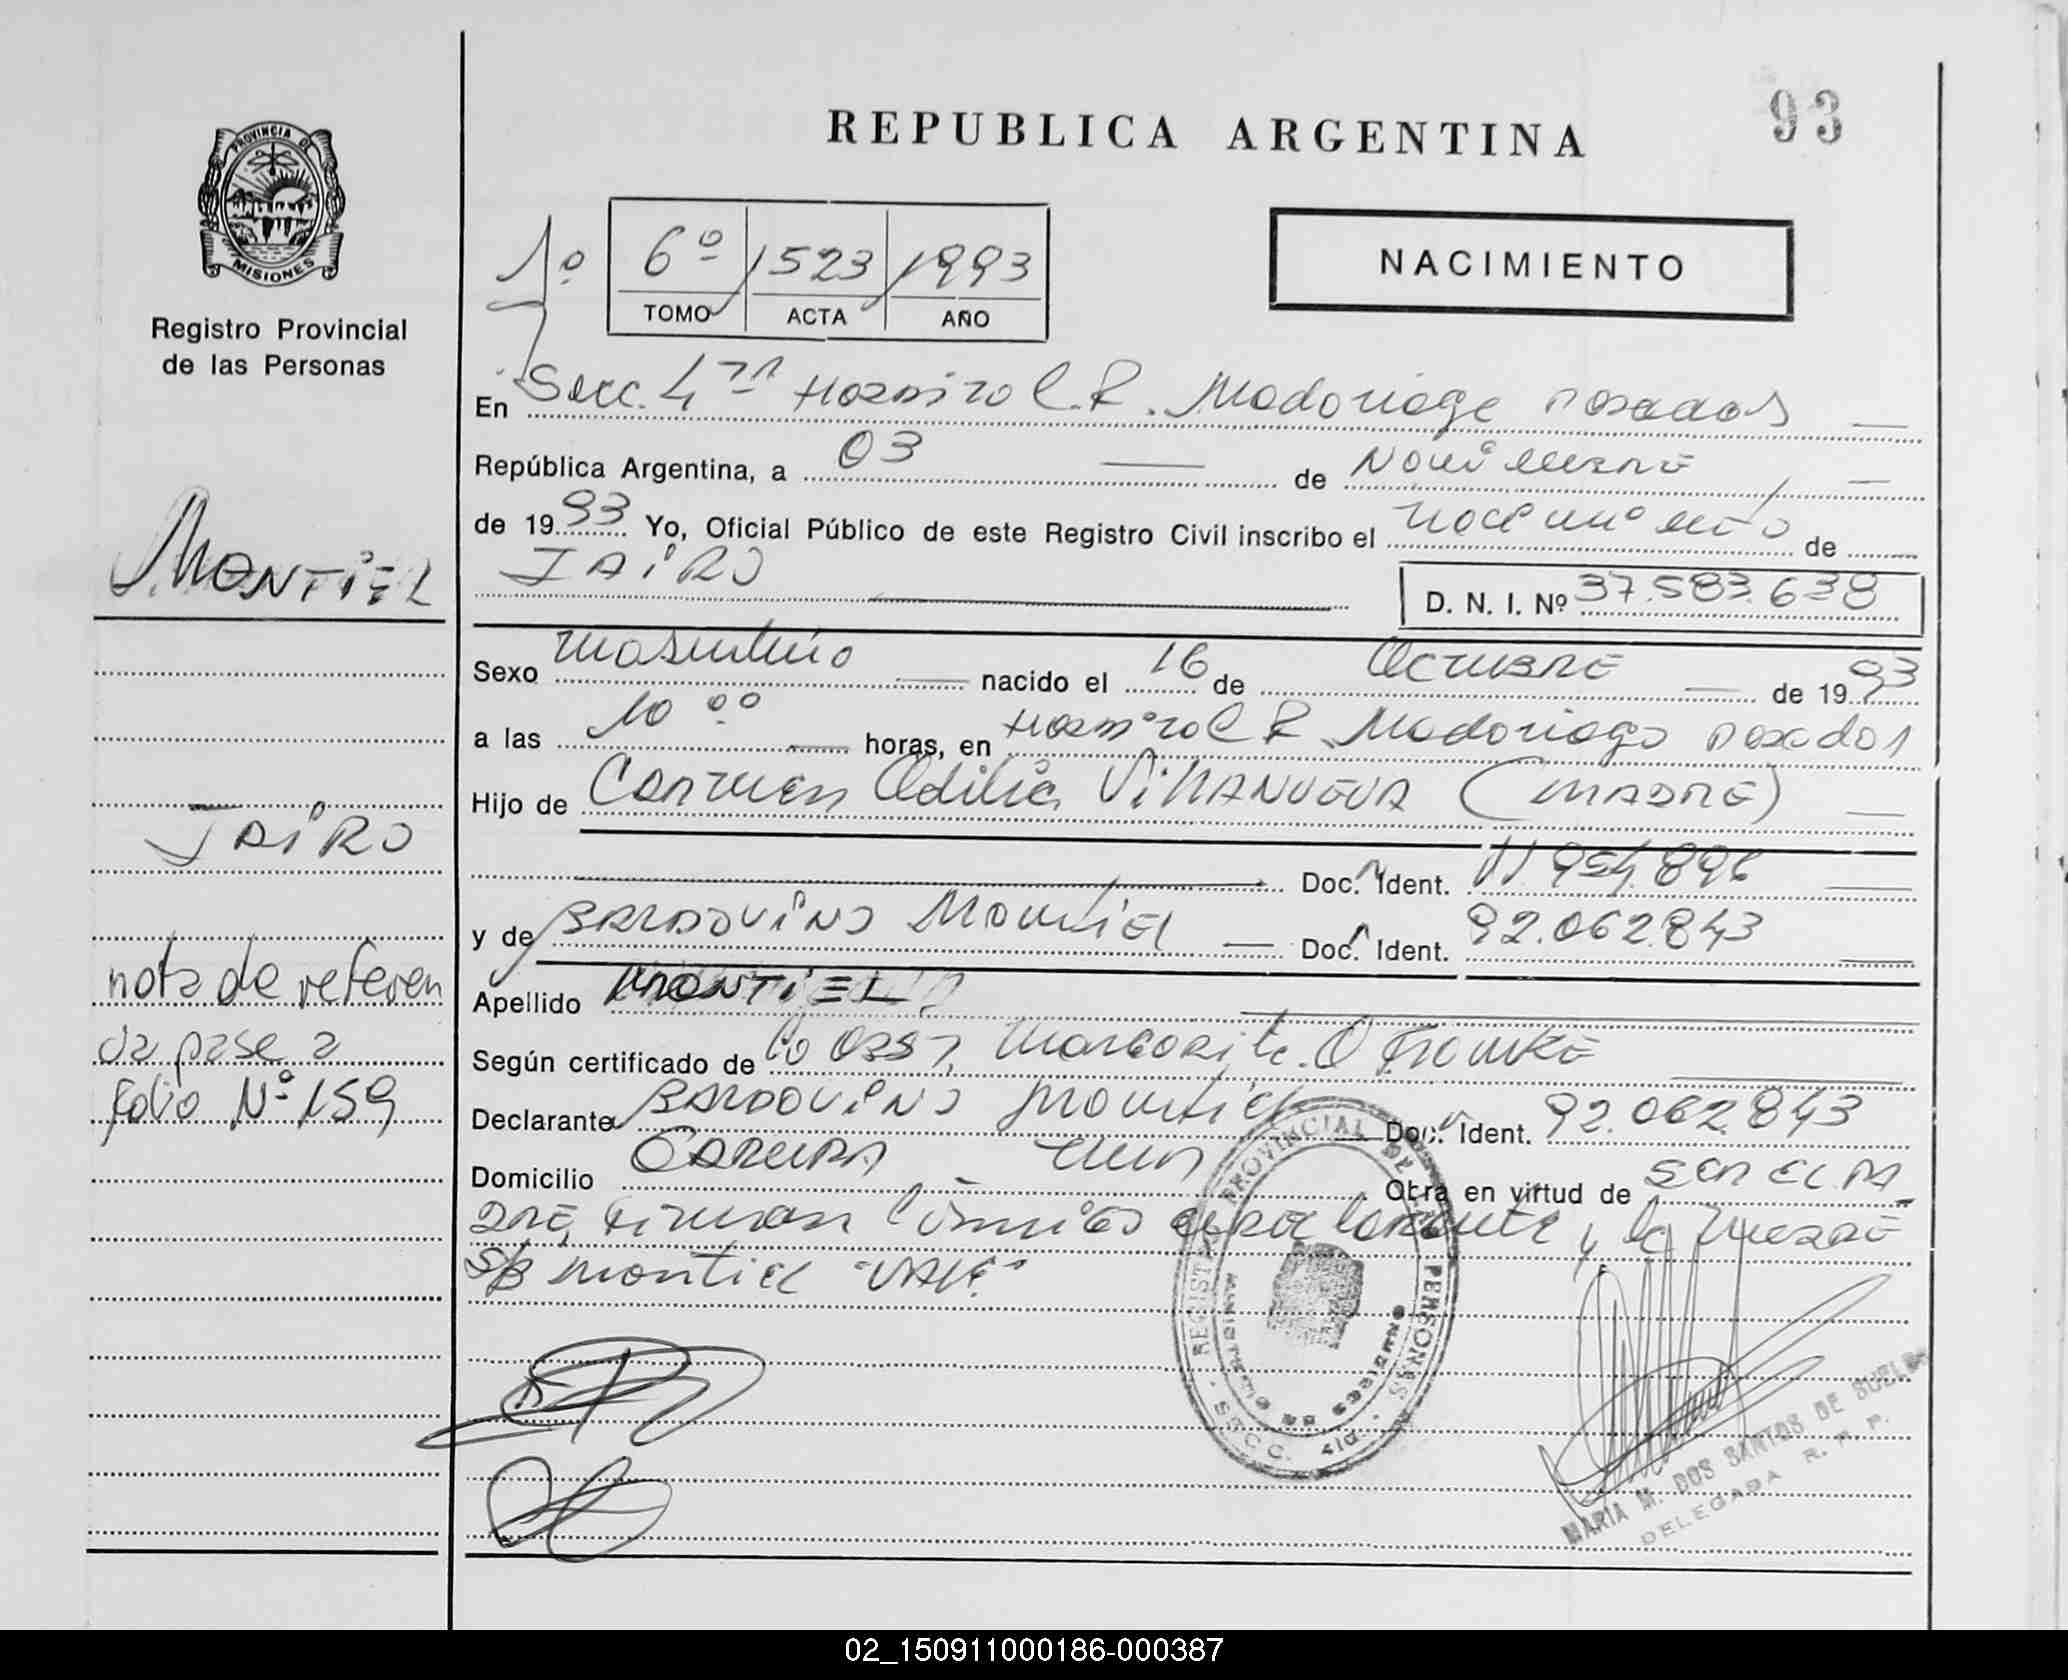 REPUBLICA ARGENTINA
93
PROVINCIA DE
MISIONES
Registro Provincial
de las Personas
1º
6º 1523 1993
TOMO ACTA AÑO
NACIMIENTO
En Secc. 4ta Hospital R. Madariaga Posadas
República Argentina, a 03 de Noviembre
de 1993 Yo, Oficial Público de este Registro Civil inscribo el nacimiento de
JAIRO
D. N. I. Nº 37.583.638
MONTIEL
Sexo masculino nacido el 16 de Octubre de 1993
a las 10 00 horas, en Hospital R. Madariaga Posadas
Hijo de Carmen Odilia VILLANUEVA (MADRE)
JAIRO
Doc. Ident. 11.954.896
y de BALDOVINO MONTIEL Doc. Ident. 92.062.843
nota de referen
Apellido MONTIEL
cia pase a
Según certificado de la Obst. Margarita O
folio Nº 159
Declarante BALDOVINO MONTIEL Doc. Ident. 92.062.843
Domicilio Obra en virtud de ser el pa
dre, firman el declarante y la madre
S/B montiel "VALE"
REGISTRO PROVINCIAL DE LAS PERSONAS
MINISTERIO DE GOBIERNO
SECC. 4ta
MARIA M. DOS SANTOS DE SUELDO
DELEGADA R. P. P.
02_150911000186-000387